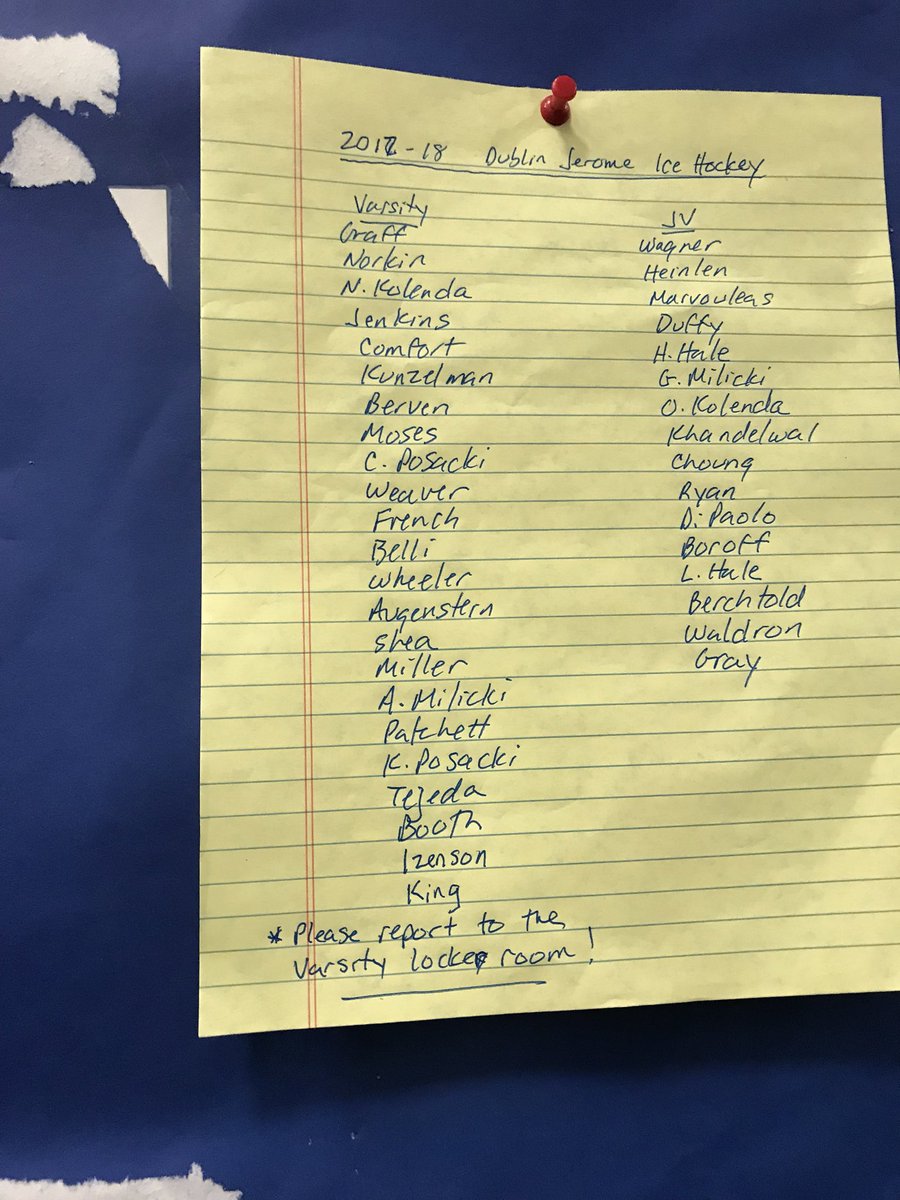 2017-18 Dublin Jerome Ice Hockey
Varsity
Graff
Norkin
N. Kolenda
Jenkins
Comfort
Kunzelman
Berven
Moses
C. Posacki
Weaver
French
Belli
Wheeler
Augenstern
Shea
Miller
A. Milicki
Patchett
K. Posacki
Tejeda
Booth
Izenson
King
JV
Wagner
Heinlen
Marvouleas
Duffy
H. Hale
G. Milicki
O. Kolenda
Khandelwal
Choung
Ryan
DiPaolo
Boroff
L. Hale
Berchtold
Waldron
Gray
* Please report to the
Varsity locker room!